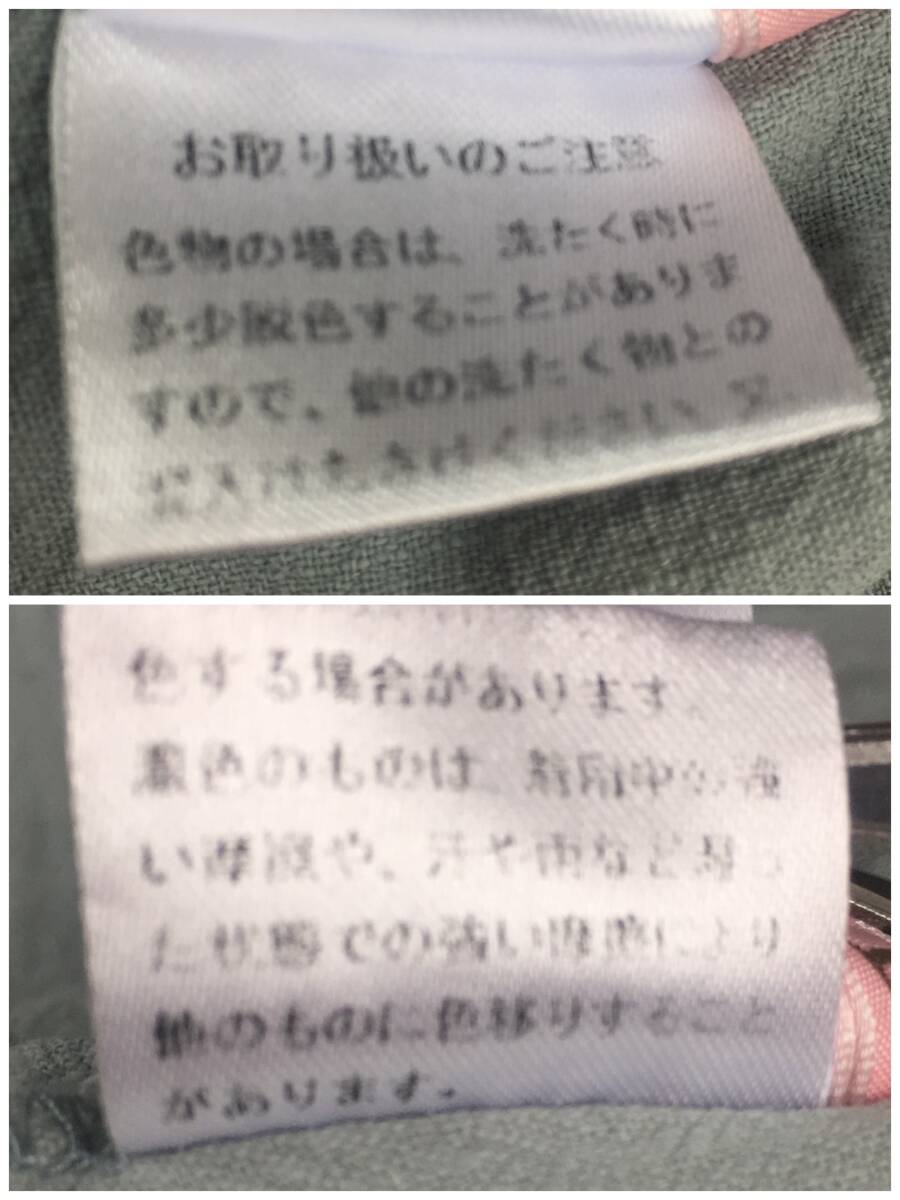 お取り扱いのご注意
色物の場合は、洗たく時に
多少脱色することがありま
すので、他の洗たく物との
はおさけください。又、
色する場合があります。
濃色のものは、着用中の強
い摩擦や、汗や雨など湿っ
た状態での強い摩擦により
他のものに色移りすること
があります。